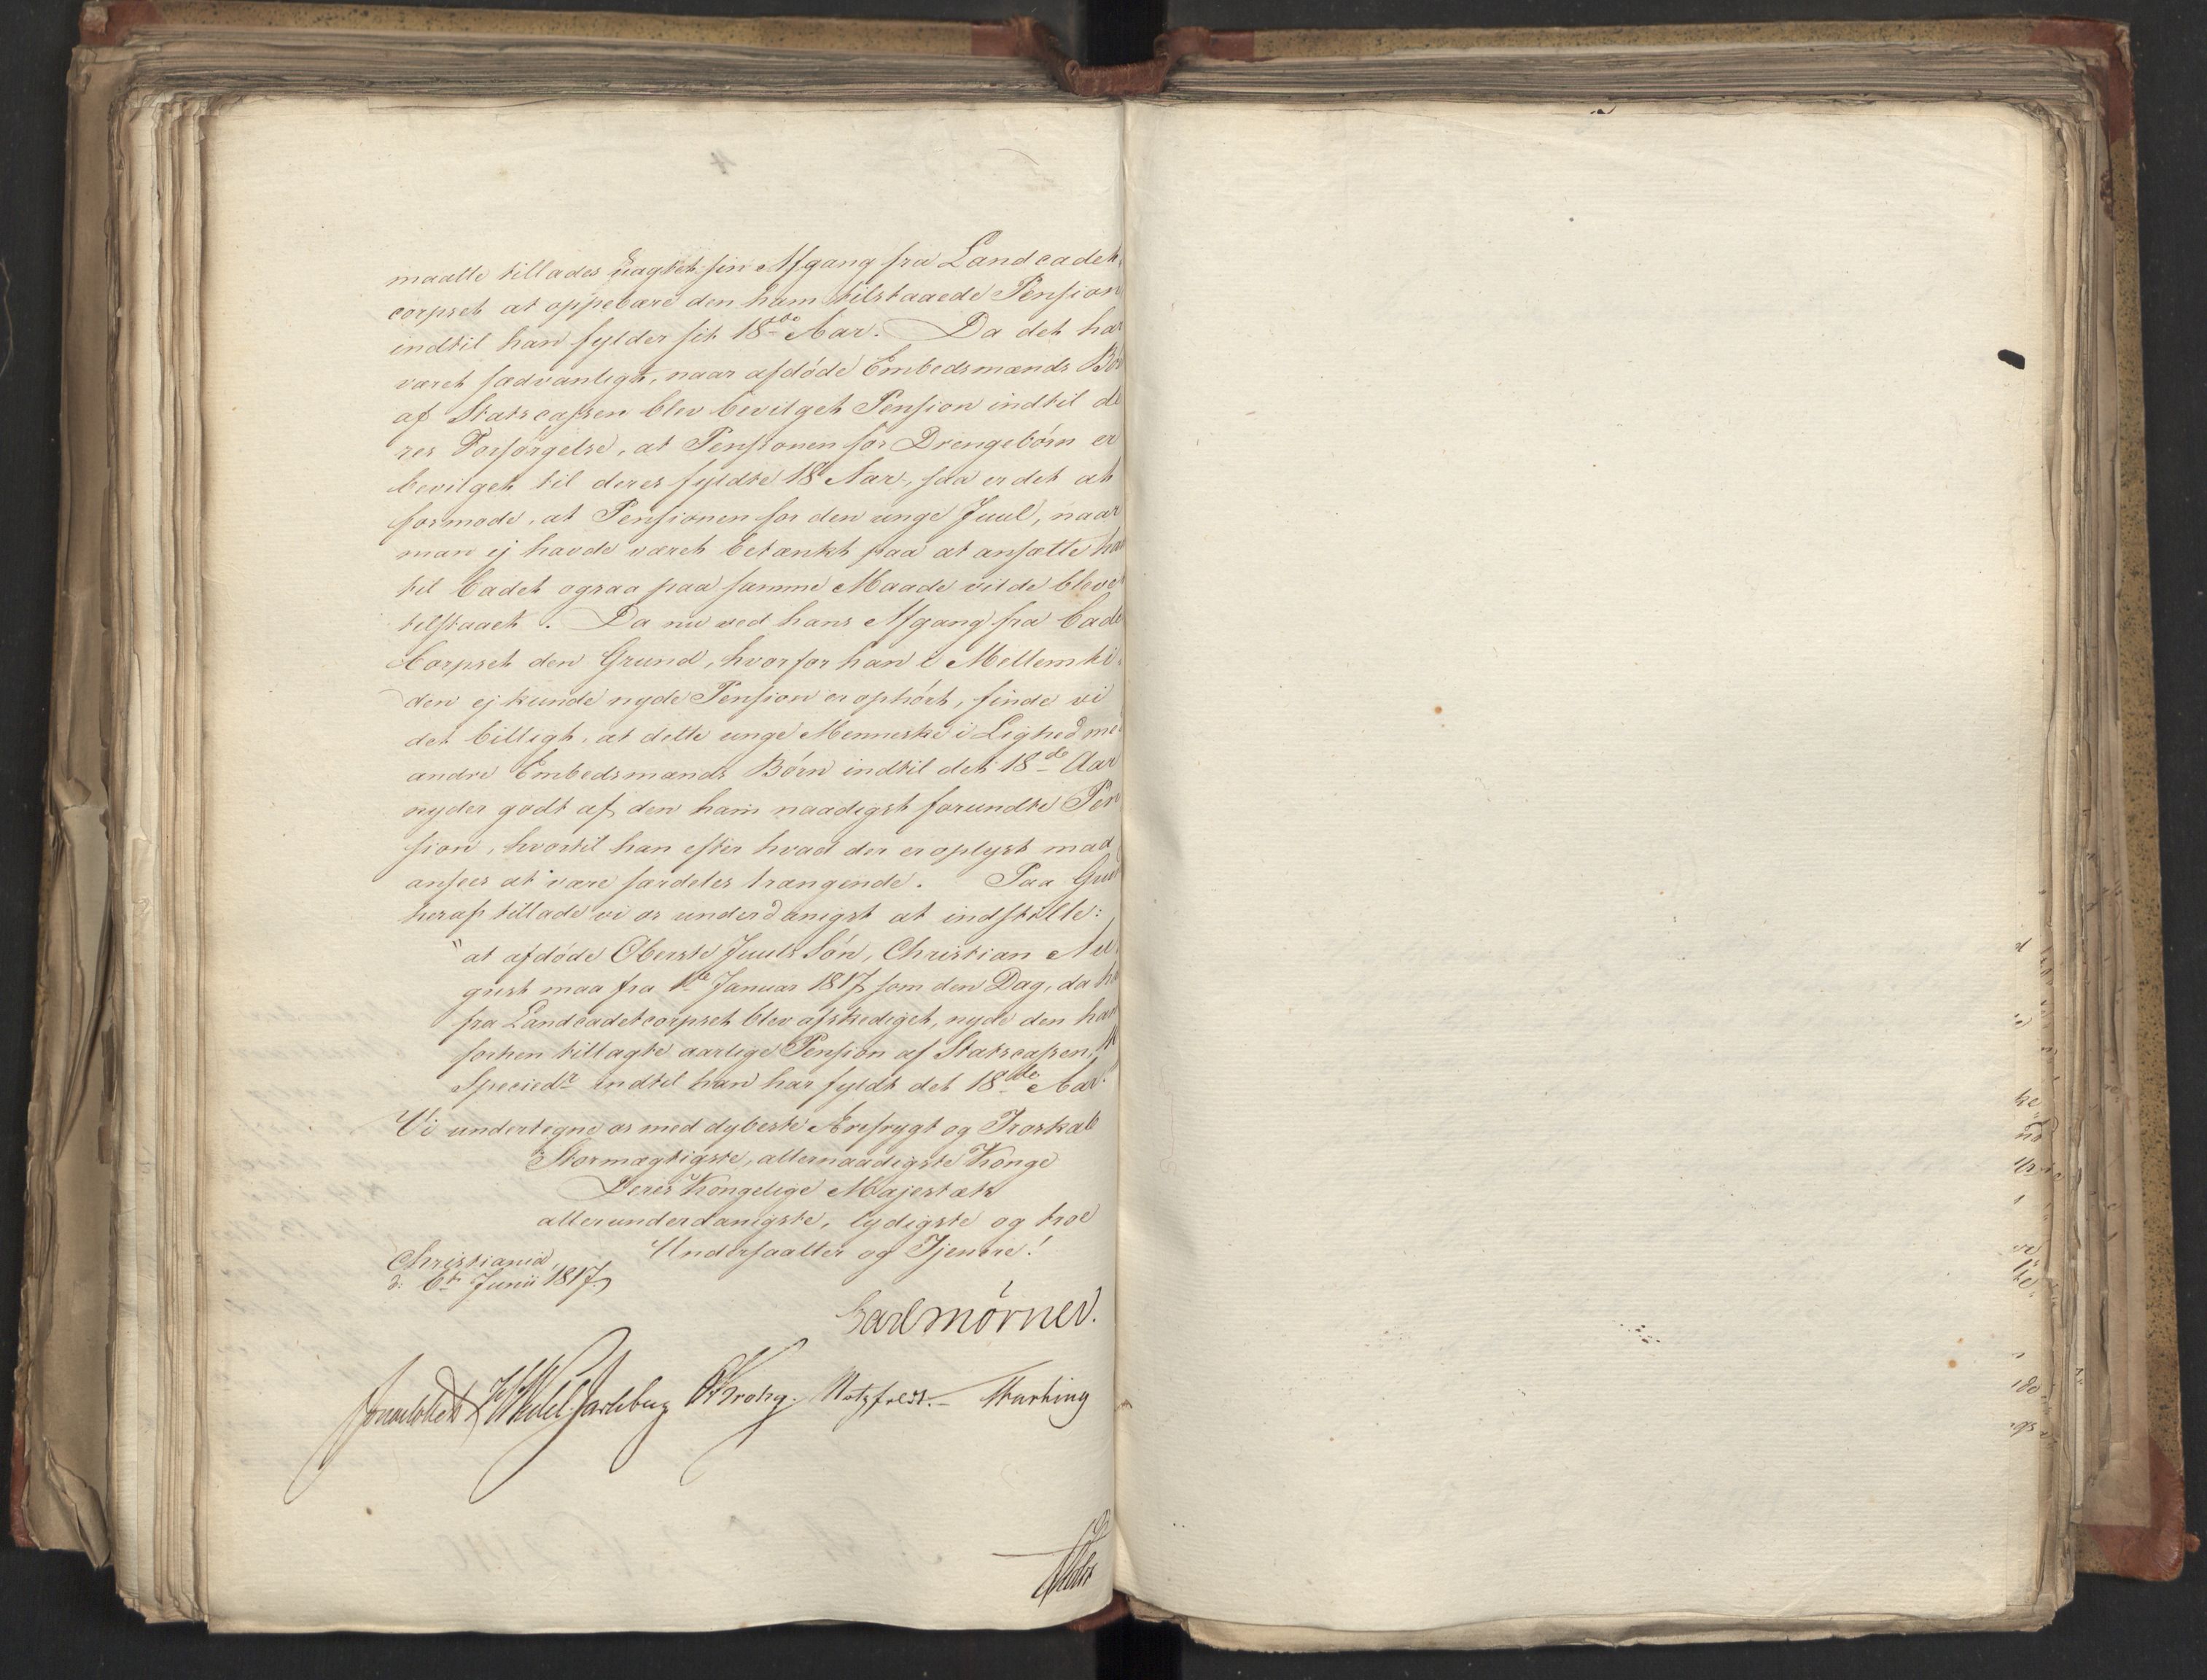 maatte tillades uagtet sin Afgang fra Landcadet-
corpset at oppebære den ham tilstaaede Pension
indtil han fylder sit 18de Aar. Da det har
været sædvanligt, naar afdøde Embedsmænds Bør
af Statscassen blev bevilget Pension indtil de
res Forsørgelse, at Pensionen for Drengebørn er
bevilget til deres fyldte 18 Aar, saa er det at
formode, at Pensionen for den unge Juul, naar
man ej havde været betænkt paa at ansætte ha
til Cadet ogsaa paa samme Maade vilde bleve
tilstaaet. Da nu ved hans Afgang fra Cade
Corpset den Grund, hvorfor han i Mellemti-
den ej kunde nyde Pension er ophørt, finde vi
det billigt, at dette unge Menneske i Lighed med
andre Embedsmænds Børn indtil det 18de Aar
nyder godt af den ham naadigst forundte Pen
sion, hvortil han efter hvad der er oplyst maa
ansees at være særdeles trængende. Paa Gru
heraf tillade vi os underdanigst at indstille:
"at afdøde Oberste Juuls Søn, Christian Au-
gust maa fra 1ste Januar 1817 som den Dag, da ha
fra Landcadetcorpset blev afskediget, nyde den ham
forhen tillagte aarlige Pension af Statscassen,
Speciedr indtil han har fyldt det 18de Aar."
Vi undertegne os med dybeste Ærefrygt og Troskab
Stormægtigste, allernaadigste Konge
Deres Kongelige Majestæts
allerunderdanigste, lydigste og troe
Undersaatter og Tjenere!
Christiania,
d: 6te Junii 1817.
Carl Mörner.
Sommerhielm HWedel Jarlsberg CKrohg. Motzfeldt. Fasting